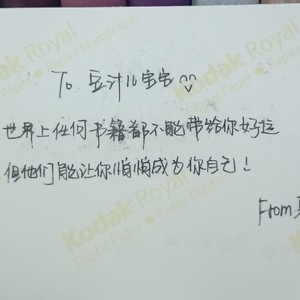 To 豆汁儿宝宝
世界上任何书籍都不能带给你好运
但他们能让你悄悄成为你自己！
From
Kodak Royal
Digital Paper • Papier Numérique